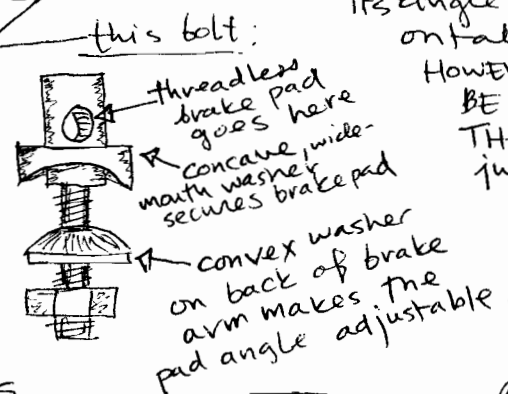 this bolt:
threadless
brake pad
goes here
concave, wide-
mouth washer
secures brake pad
convex washer
on back of brake
arm makes the
pad angle adjustable
its angle
HOWE
BE
TH
ju